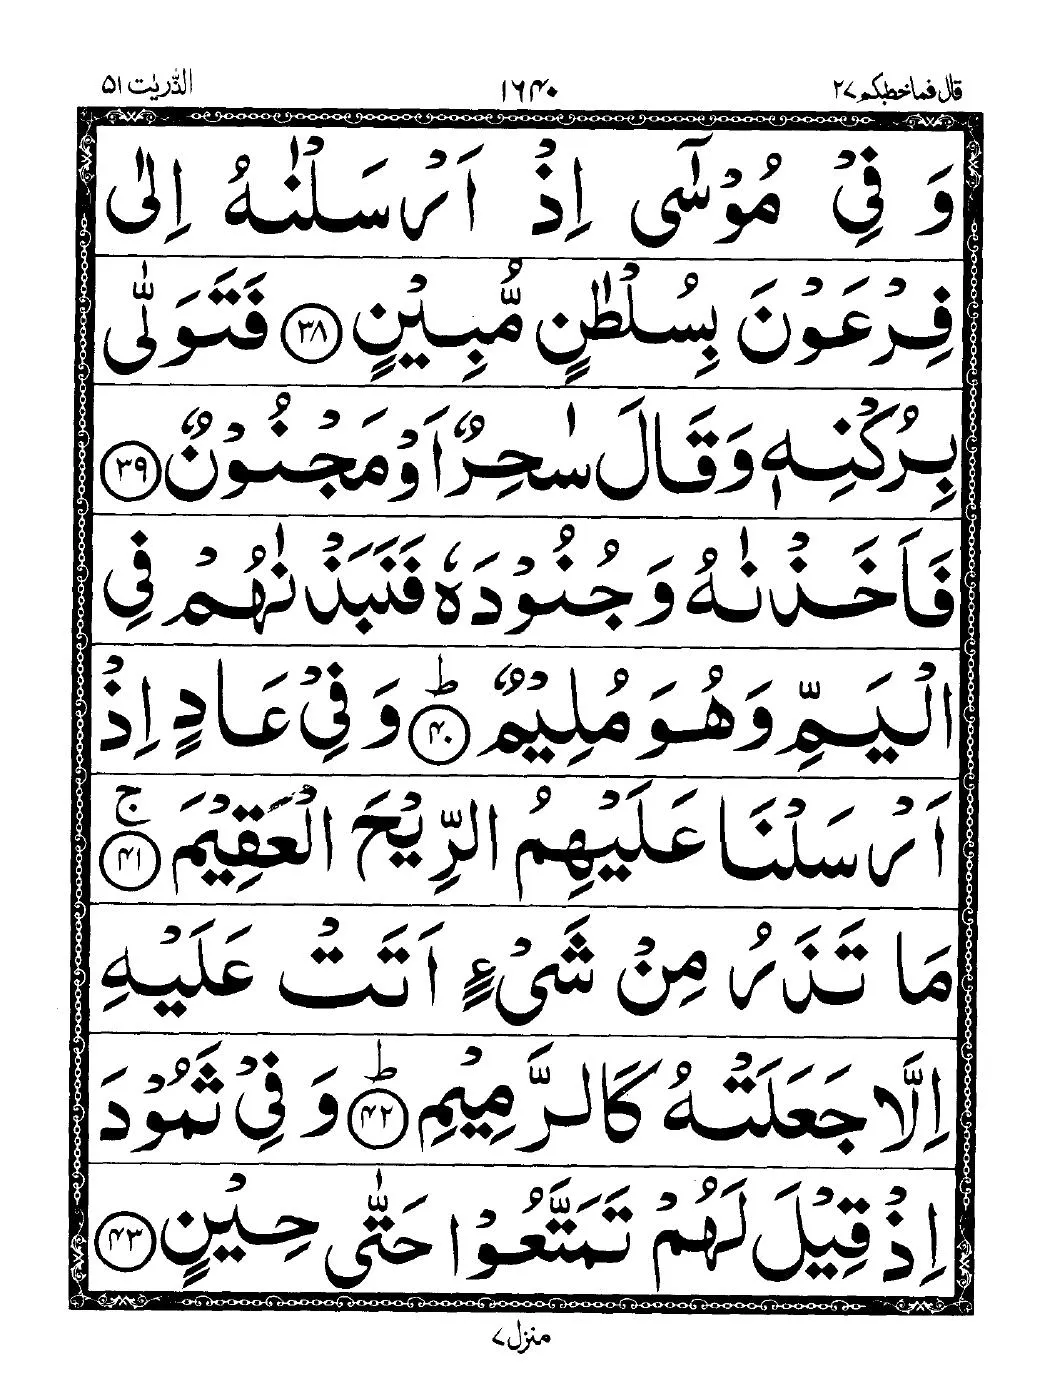 قال فما خطبكم ۲۷ ۱۶۴۰ الذّریٰت ۵۱
وَ فِیْ مُوْسٰۤی اِذْ اَرْسَلْنٰهُ اِلٰی
فِرْعَوْنَ بِسُلْطٰنٍ مُّبِیْنٍ ﴿۳۸﴾ فَتَوَلّٰی
بِرُكْنِهٖ وَ قَالَ سٰحِرٌ اَوْ مَجْنُوْنٌ ﴿۳۹﴾
فَاَخَذْنٰهُ وَ جُنُوْدَهٗ فَنَبَذْنٰهُمْ فِی
الْیَمِّ وَ هُوَ مُلِیْمٌ ﴿ؕ۴۰﴾ وَ فِیْ عَادٍ اِذْ
اَرْسَلْنَا عَلَیْهِمُ الرِّیْحَ الْعَقِیْمَ ﴿ۚ۴۱﴾
مَا تَذَرُ مِنْ شَیْءٍ اَتَتْ عَلَیْهِ
اِلَّا جَعَلَتْهُ كَالرَّمِیْمِ ﴿ؕ۴۲﴾ وَ فِیْ ثَمُوْدَ
اِذْ قِیْلَ لَهُمْ تَمَتَّعُوْا حَتّٰی حِیْنٍ ﴿۴۳﴾
منزل ۷